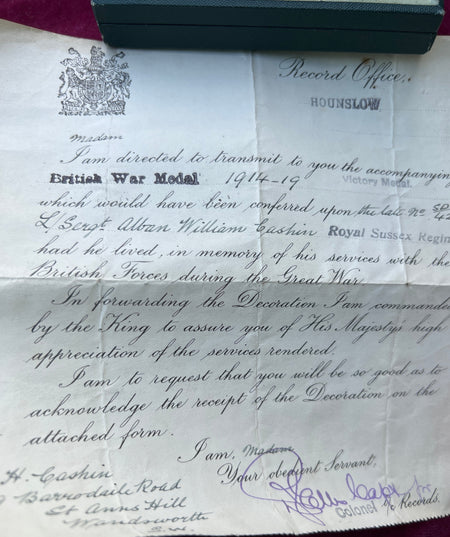 Record Office,
HOUNSLOW
Madam
I am directed to transmit to you the accompanying
British War Medal 1914-19 Victory Medal.
which would have been conferred upon the late No SD
L/Sergt Alban William Cashin Royal Sussex Regim
had he lived, in memory of his services with the
British Forces during the Great War.
In forwarding the Decoration I am commanded
by the King to assure you of His Majesty's high
appreciation of the services rendered.
I am to request that you will be so good as to
acknowledge the receipt of the Decoration on the
attached form.
I am, Madam
Your obedient Servant,
Colonel i/c Records.
for
H. Cashin
Borrodaile Road
St Anns Hill
Wandsworth
S.W.